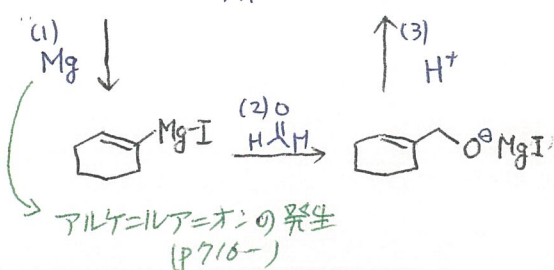 (1)
Mg
(3)
H⁺
Mg-I
(2) O
H H
O⊖ MgI
アルケニルアニオンの発生
(p716-)